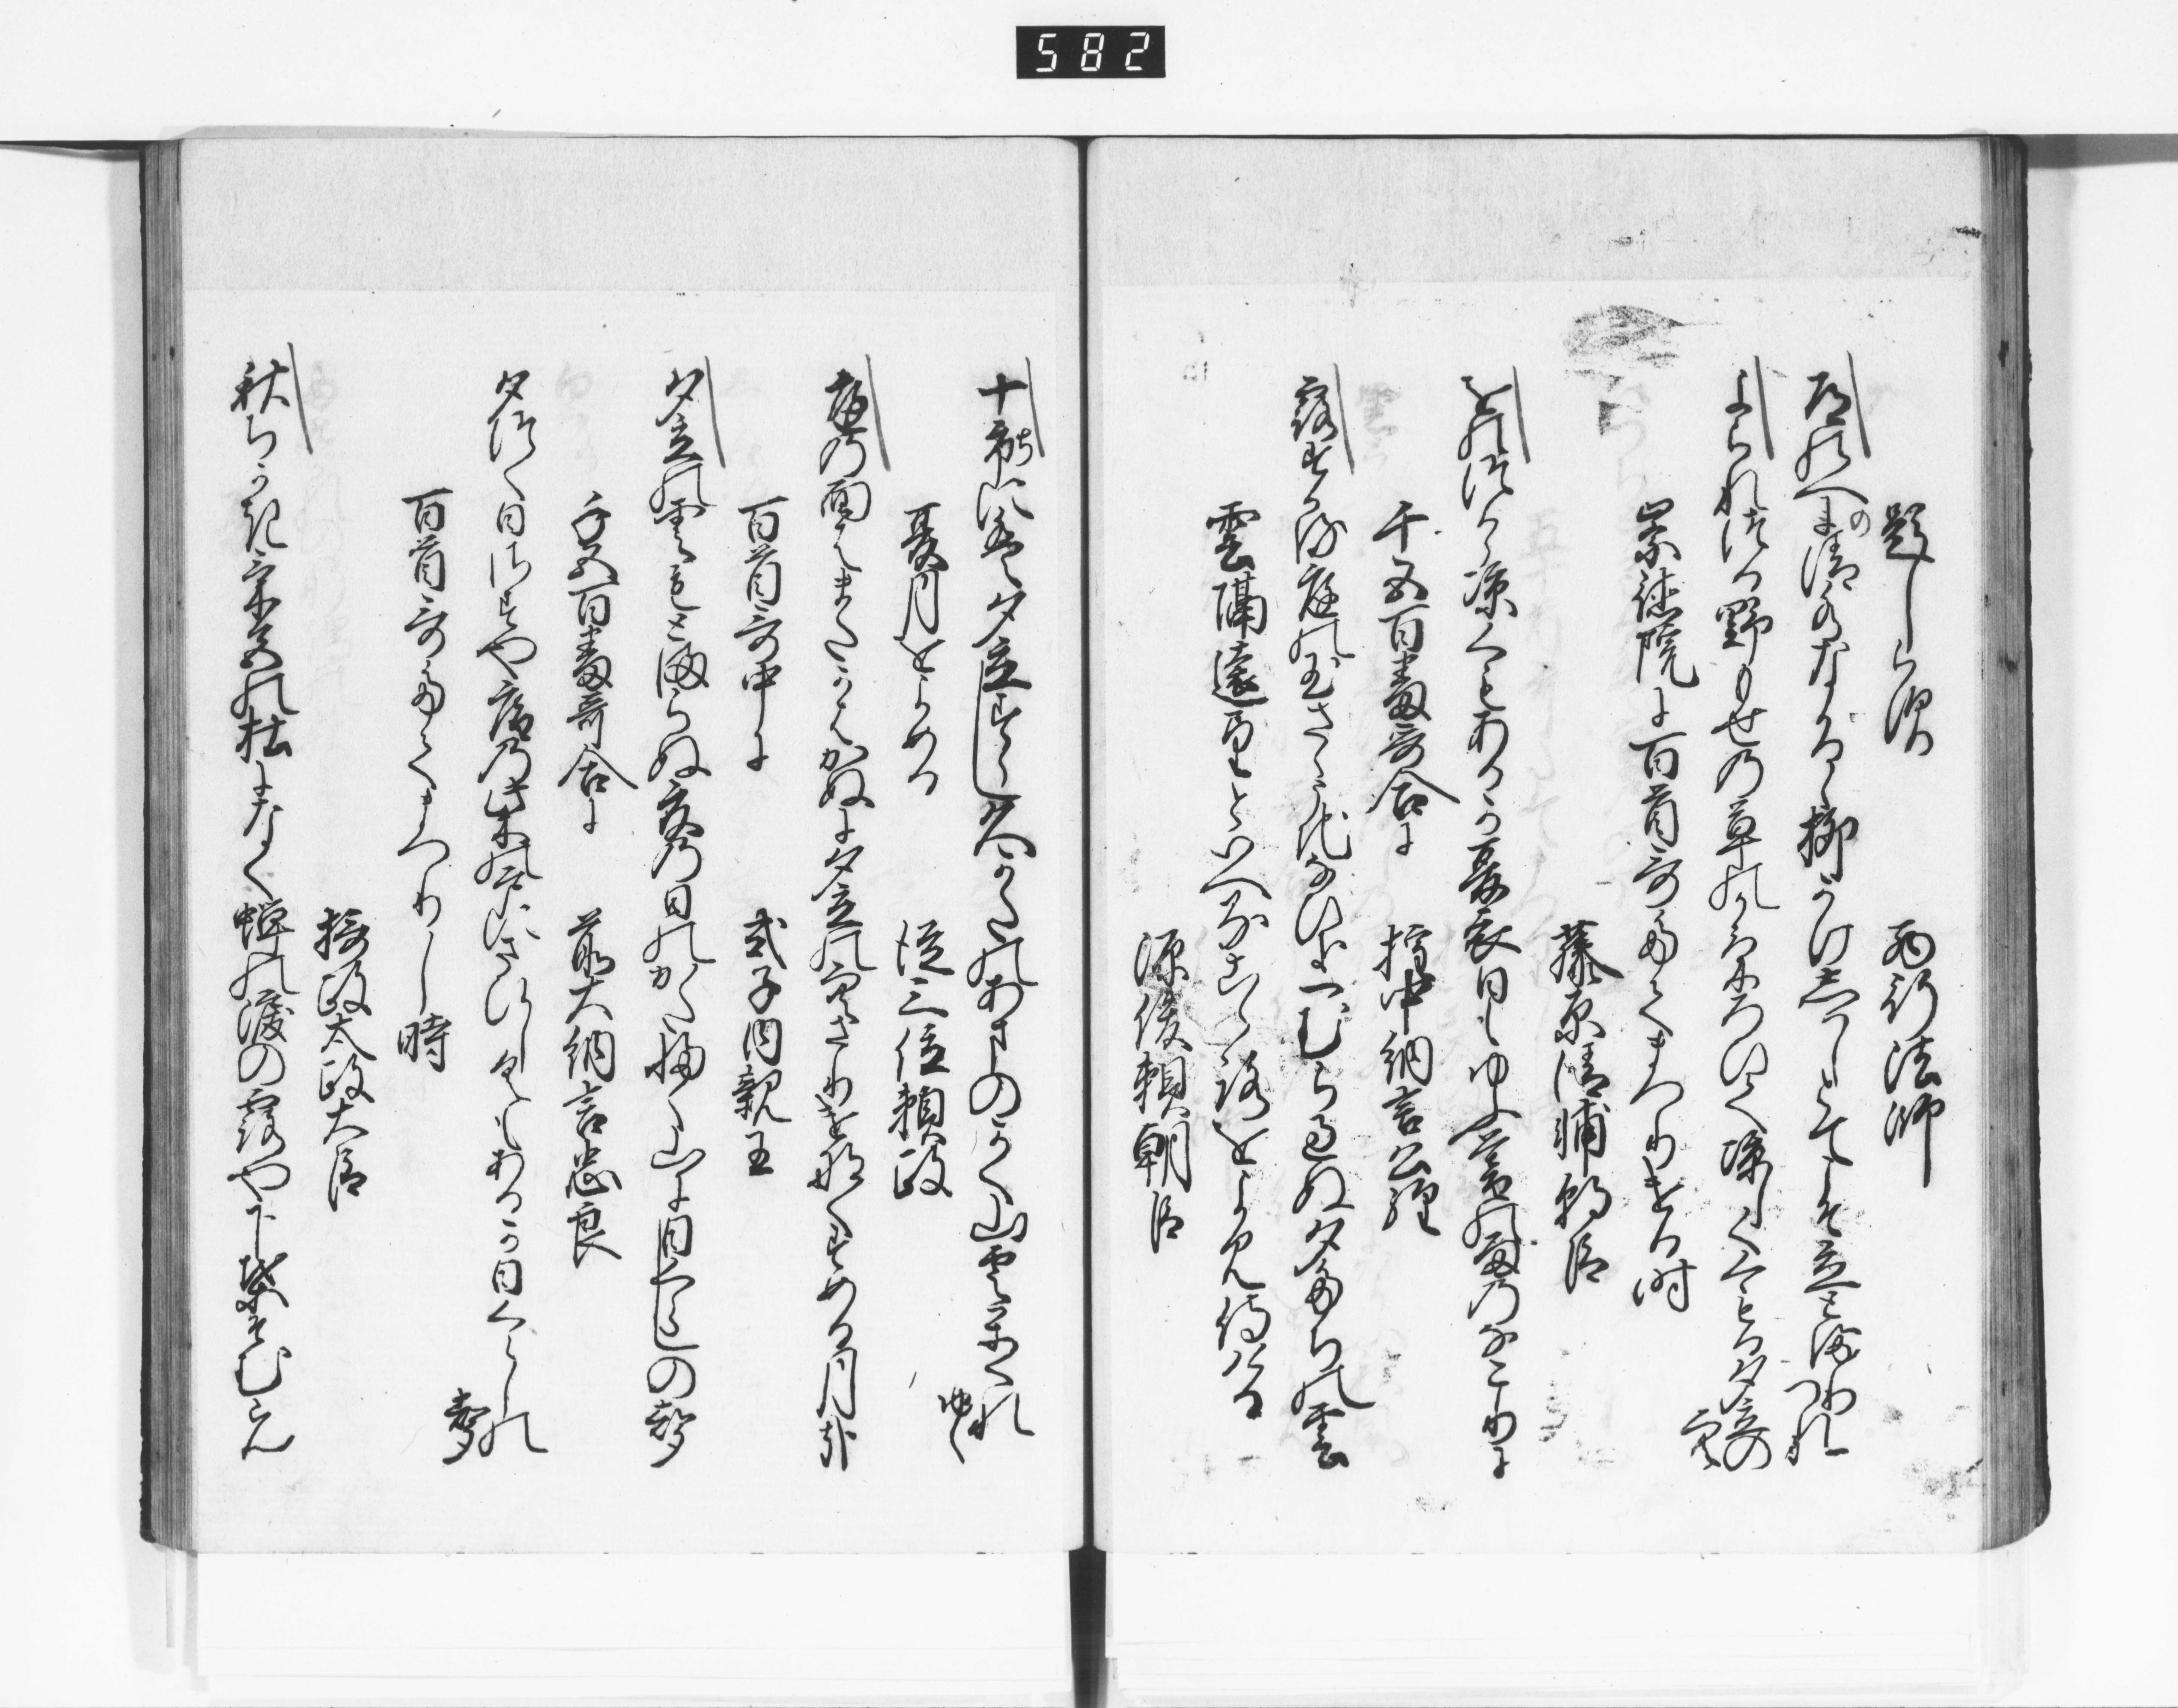 582
題しらす　西行法師
道のへに清水なかるゝ柳かけしはしとてこそ立とまりつれ
よられつる野もせの草のかけろひて涼しくくもる夕立の空
崇徳院に百首哥たてまつりける時
藤原清輔朝臣
をのつから涼しくもあるか夏衣日もゆふ暮の雨のなこりに
千五百番哥合に　権中納言公経
露すかる庭の玉さゝうちなひき一むら過ぬ夕たちの雲
雲隔遠望といへるこゝろをよみ侍ける
源俊頼朝臣
十市には夕立すらし久かたのあまのかく山雲かくれゆく
夏月をよめる　従三位頼政
庭の面はまたかはかぬに夕立の空さりけなくすめる月哉
百首哥中に　式子内親王
夕立の雲もとまらぬ夏の日のかたふく山に日くらしの聲
千五百番哥合に　前大納言忠良
夕つく日さすや庵の柴の戸にさひしくもあるか日くらしの聲
百首哥たてまつりし時
摂政太政大臣
秋ちかきけしきの杜になく蝉の涙の露や下葉そむらん